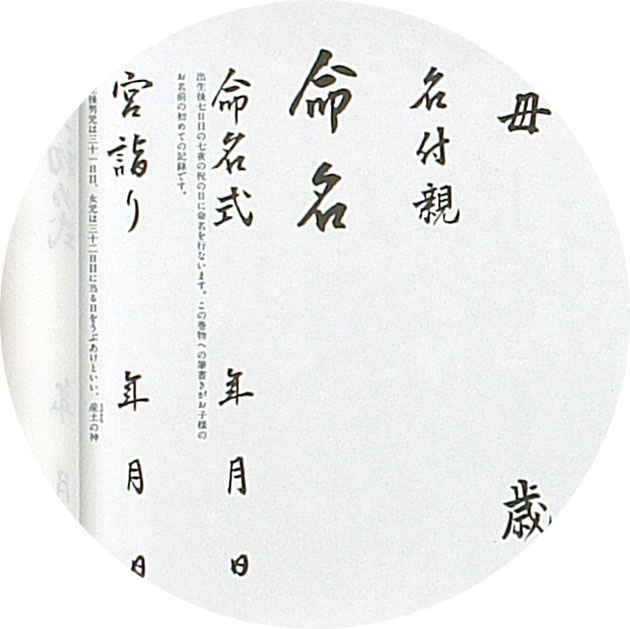 母 歳
名付親
命名
命名式 年 月 日
出生後七日目の七夜の祝の日に命名を行ないます。この巻物への筆書きがお子様の
お名前の初めての記録です。
宮詣り 年 月 日
男児は三十一日目、女児は三十二日目に当る日をうぶあけといい、産土の神
初め式 年 月